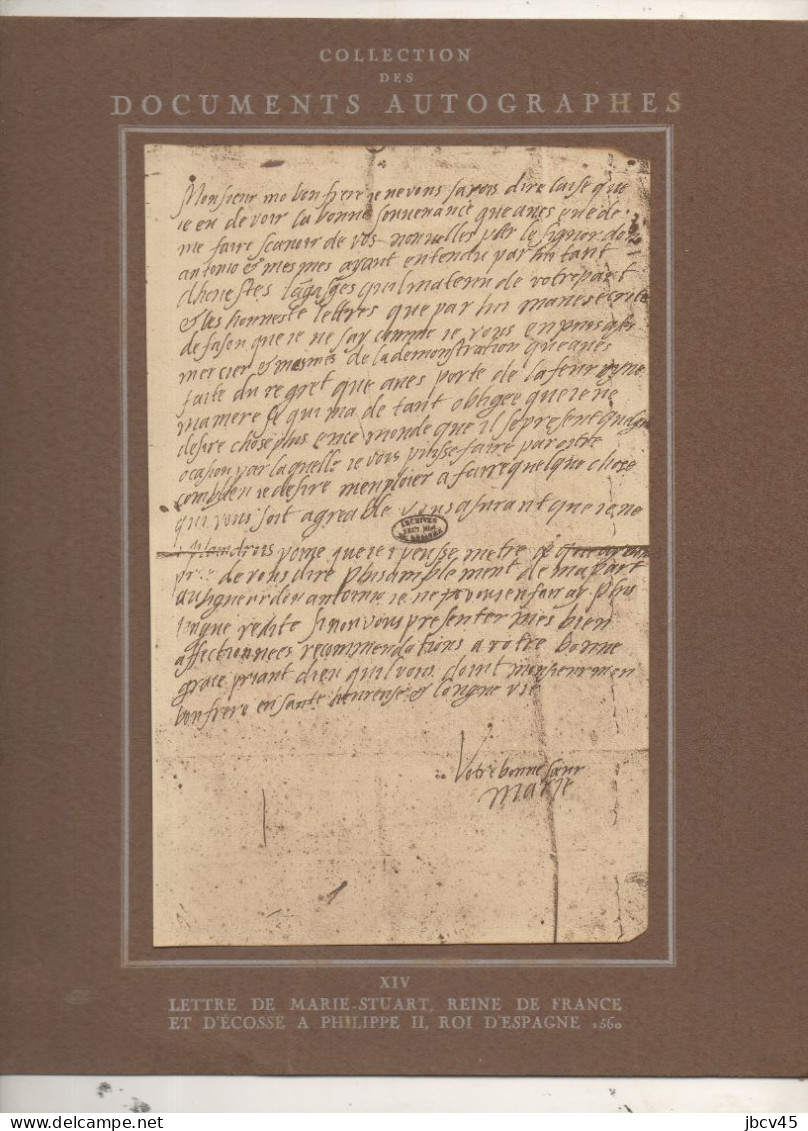 COLLECTION
DES
DOCUMENTS AUTOGRAPHES
Monsieur mo bon frere ie ne vous sarois dire laise que
ie eu de voir la bonne souvenance que aves eue de
me faire scavoir de vos nouvelles par le signor don
antonio & mesmes ayant entendu par lui tant
dhonestes lagasges quil ma tenu de votre part
& les honneste lettres que par lui maves ecrite
de fason que ie ne say comme ie vous en puis asses
mercier & mesmes de la demonstration que aves
faite du regret que aves porte de la feu royne
ma mere se qui ma de tant obligee que ie ne
desire chose plus en ce monde que il se present quelque
ocasion par laquelle ie vous puisse faire paroitre
combien ie desire menploier a faire quelque chose
qui vous soit agreable vous asurant que ie ne
ARCHIVES
pome que ie i peusse metre
de vous dire plus amplement de ma part
au signeur don antonio ie ne vous en feray plus
longue redite sinon vous presenter mes bien
affectionnees recommendations a votre bonne
grace priant dieu quil vous doint monsieur mon
bon frere en sante heureuse & longue vie
Votre bonne sœur
Marie
1
XIV
LETTRE DE MARIE-STUART, REINE DE FRANCE
ET D'ÉCOSSE A PHILIPPE II, ROI D'ESPAGNE 1560
delcampe.net
jbcv45